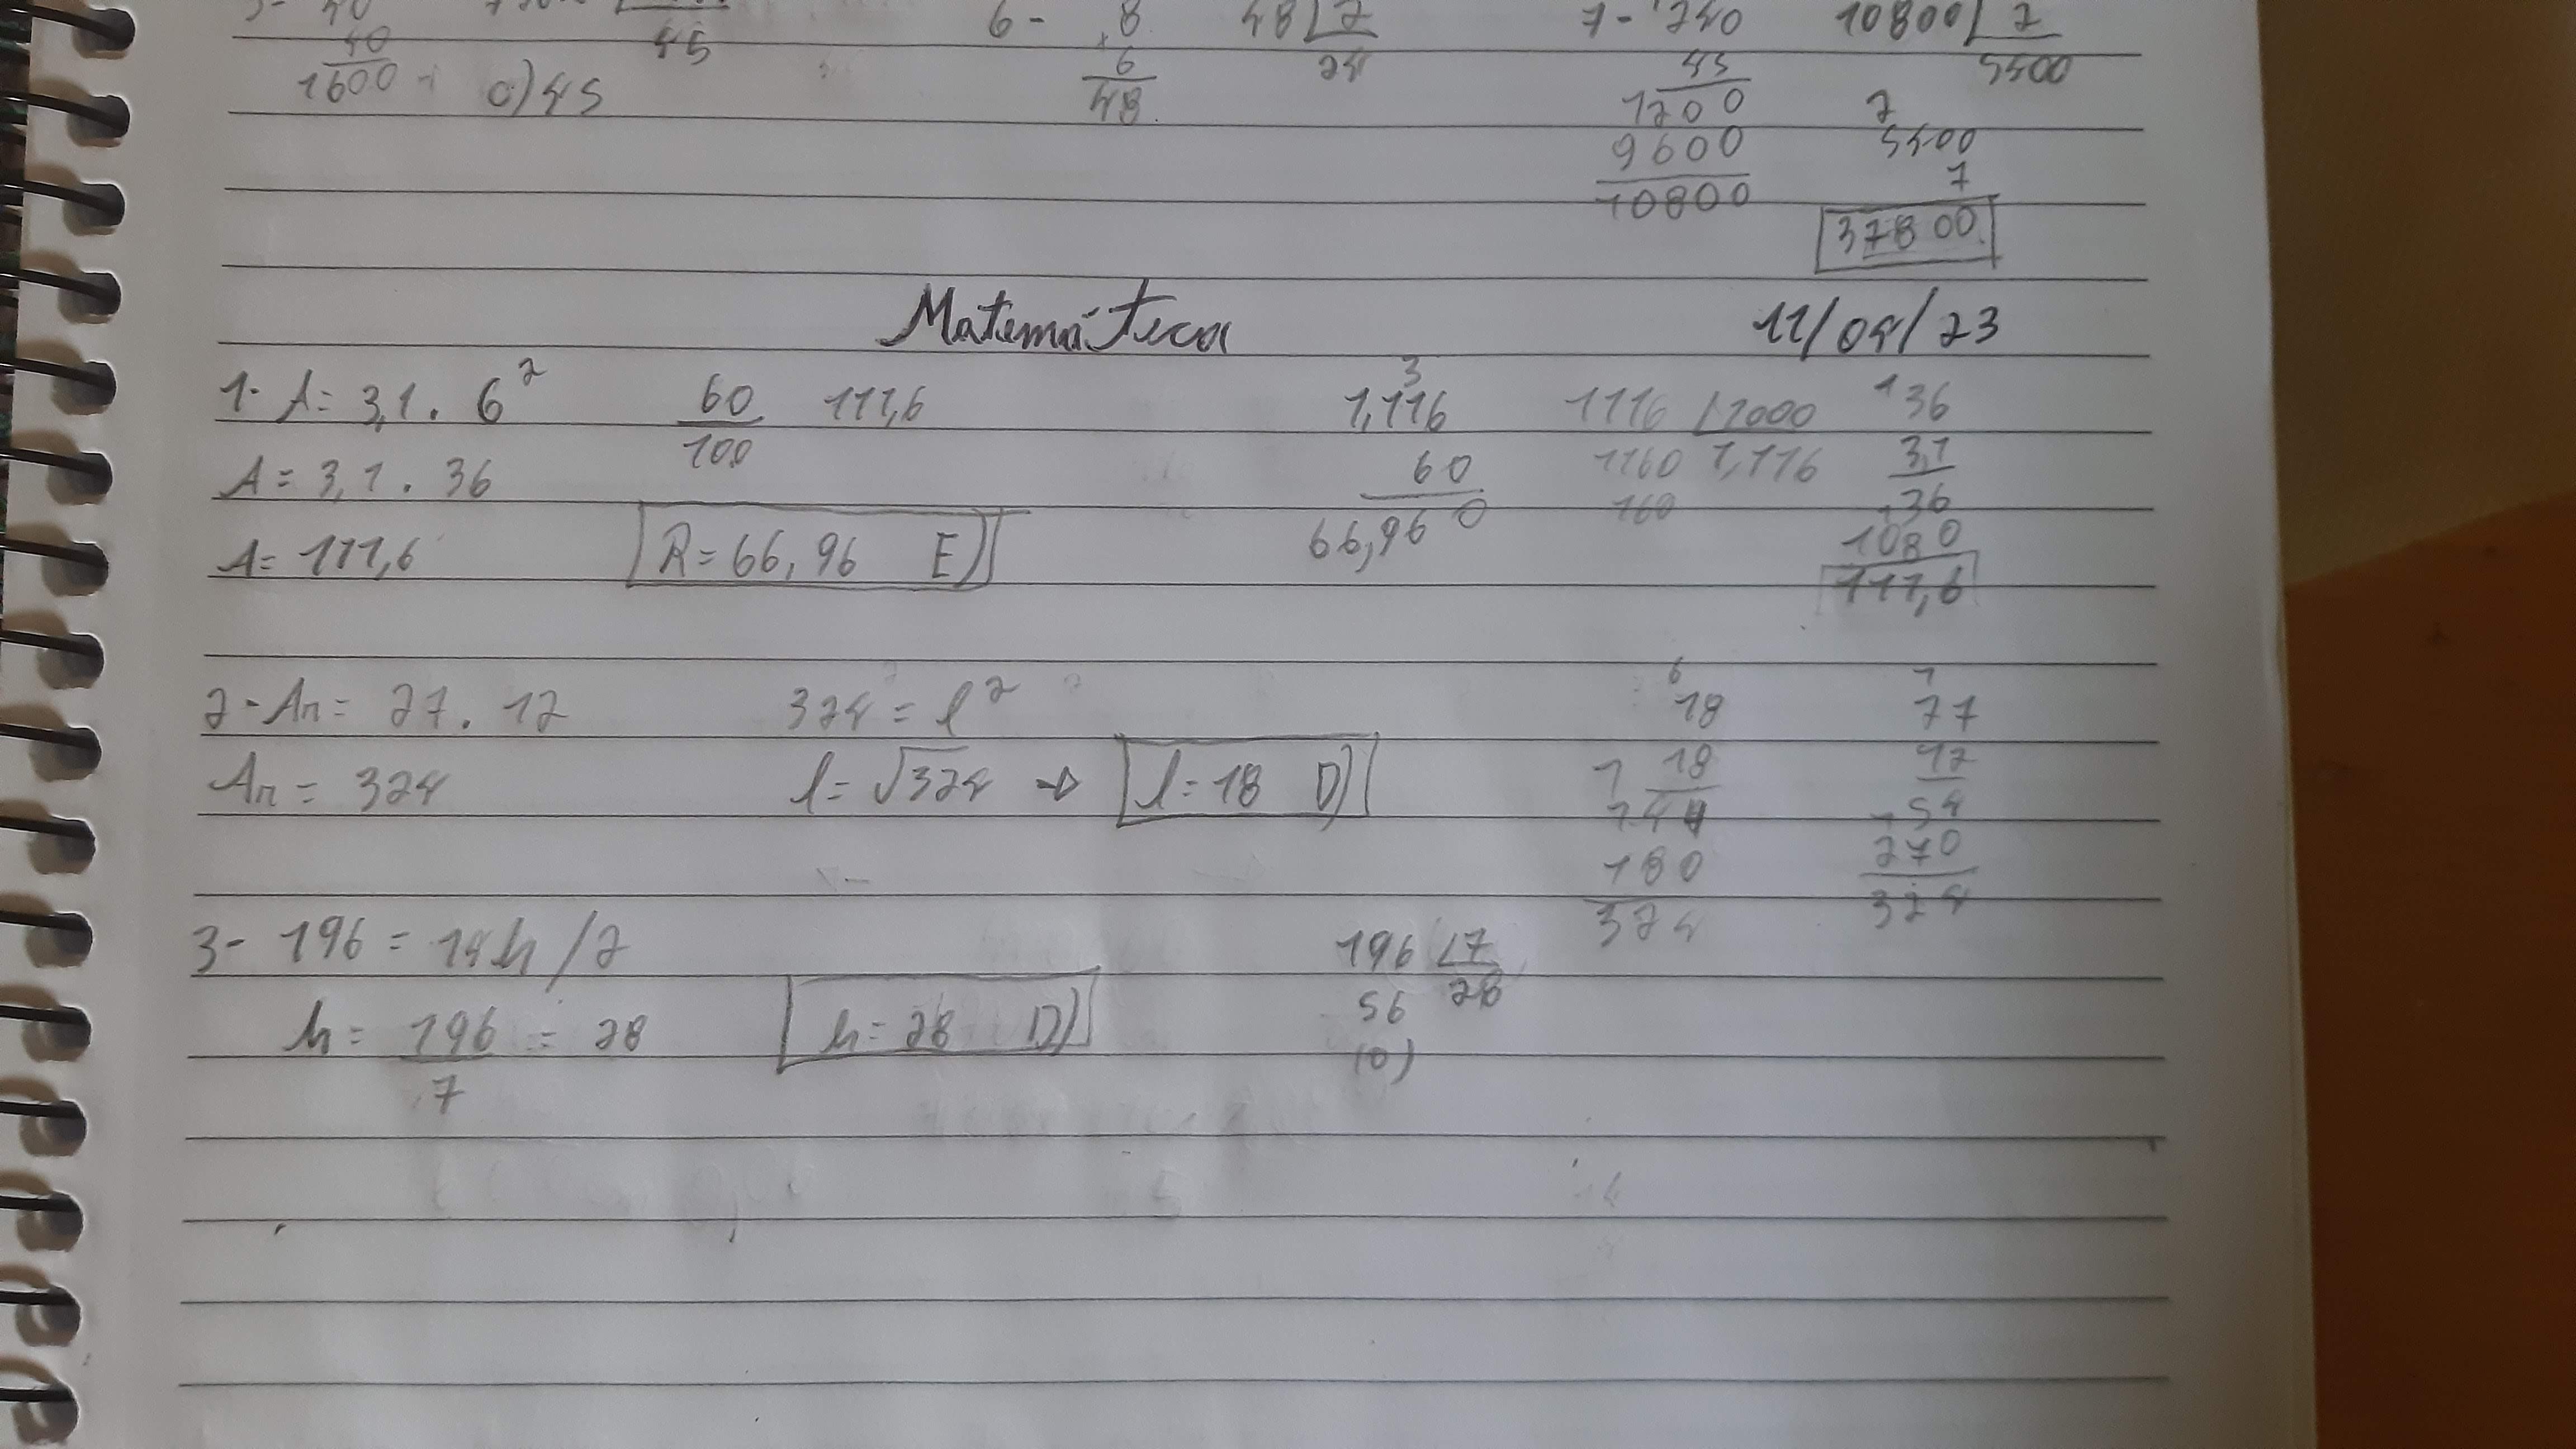 40
40
1600
45
c) 45
6- 8
6
48
48 2
24
7- 240
45
1200
9600
10800
10800 2
5400
2
5400
7
37800
Matemática 11/04/23
1- A= 3,1 . 6²
A= 3,1 . 36
A= 111,6
60 111,6
100
R= 66,96 E)
3
1,116
60
66,960
1116 1000
1160 1,116
160
1 36
3,1
36
1080
111,6
2- Ar= 27 . 12
Ar= 324
324 = l²
l= √324 → l= 18 D)
6
18
18
144
180
324
1
27
12
54
270
324
3- 196 = 14h/2
h= 196 = 28
7
h= 28 D)
196 7
56 28
(0)